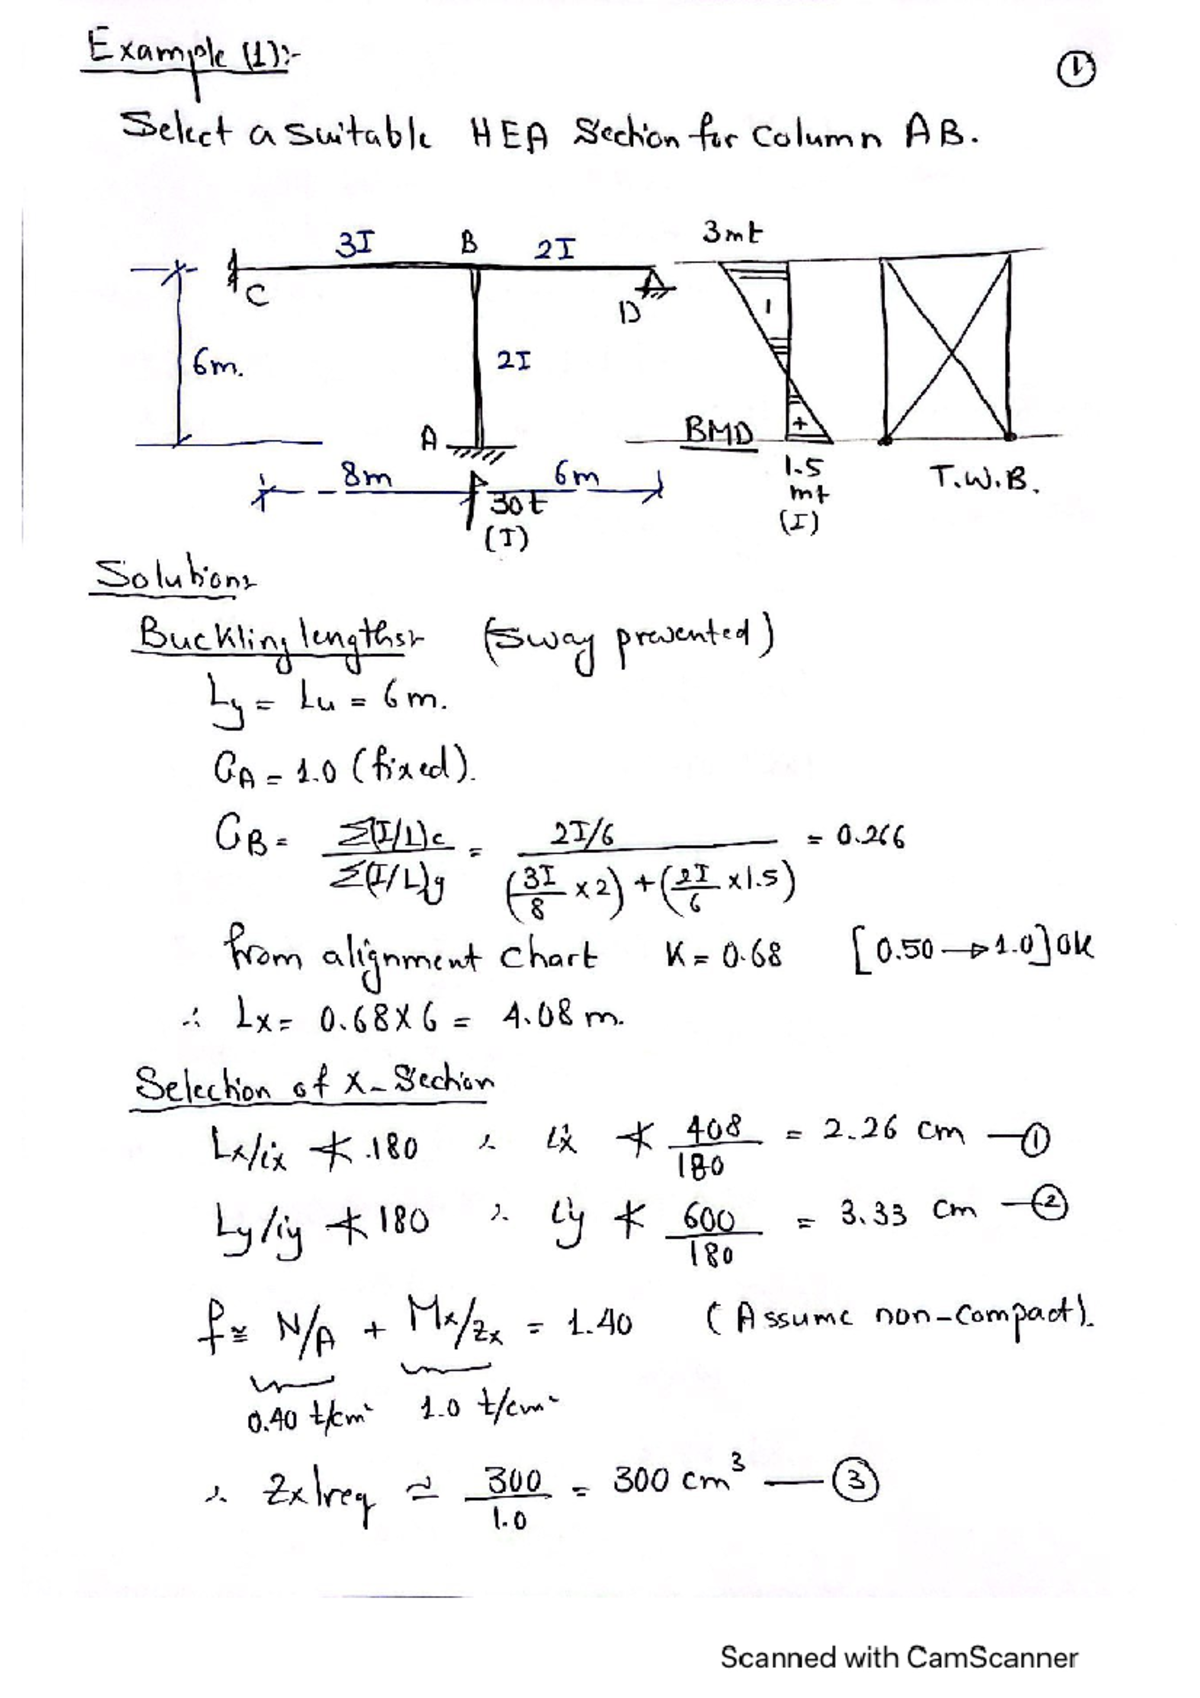 Example (1):-
①
Select a suitable HEA Section for Column AB.
3I B 2I 3mt
C D
6m. 2I
A BMD
8m 6m 1.5 mt (I) T.W.B.
30t (I)
Solution:
Buckling lengths:- (Sway prevented)
Ly = Lu = 6m.
GA = 1.0 (fixed).
GB = Σ(I/L)c / Σ(I/L)g = 2I/6 / (3I/8 x 2) + (2I/6 x 1.5) = 0.266
from alignment chart K = 0.68 [0.50 → 1.0] OK
∴ Lx = 0.68 x 6 = 4.08 m.
Selection of X-Section
Lx/ix ≮ 180 ∴ ix ≮ 408/180 = 2.26 cm — ①
Ly/iy ≮ 180 ∴ iy ≮ 600/180 = 3.33 cm — ②
f ≅ N/A + Mx/Zx = 1.40 (Assume non-compact).
0.40 t/cm² 1.0 t/cm²
∴ Zx|req ≃ 300/1.0 = 300 cm³ — ③
Scanned with CamScanner